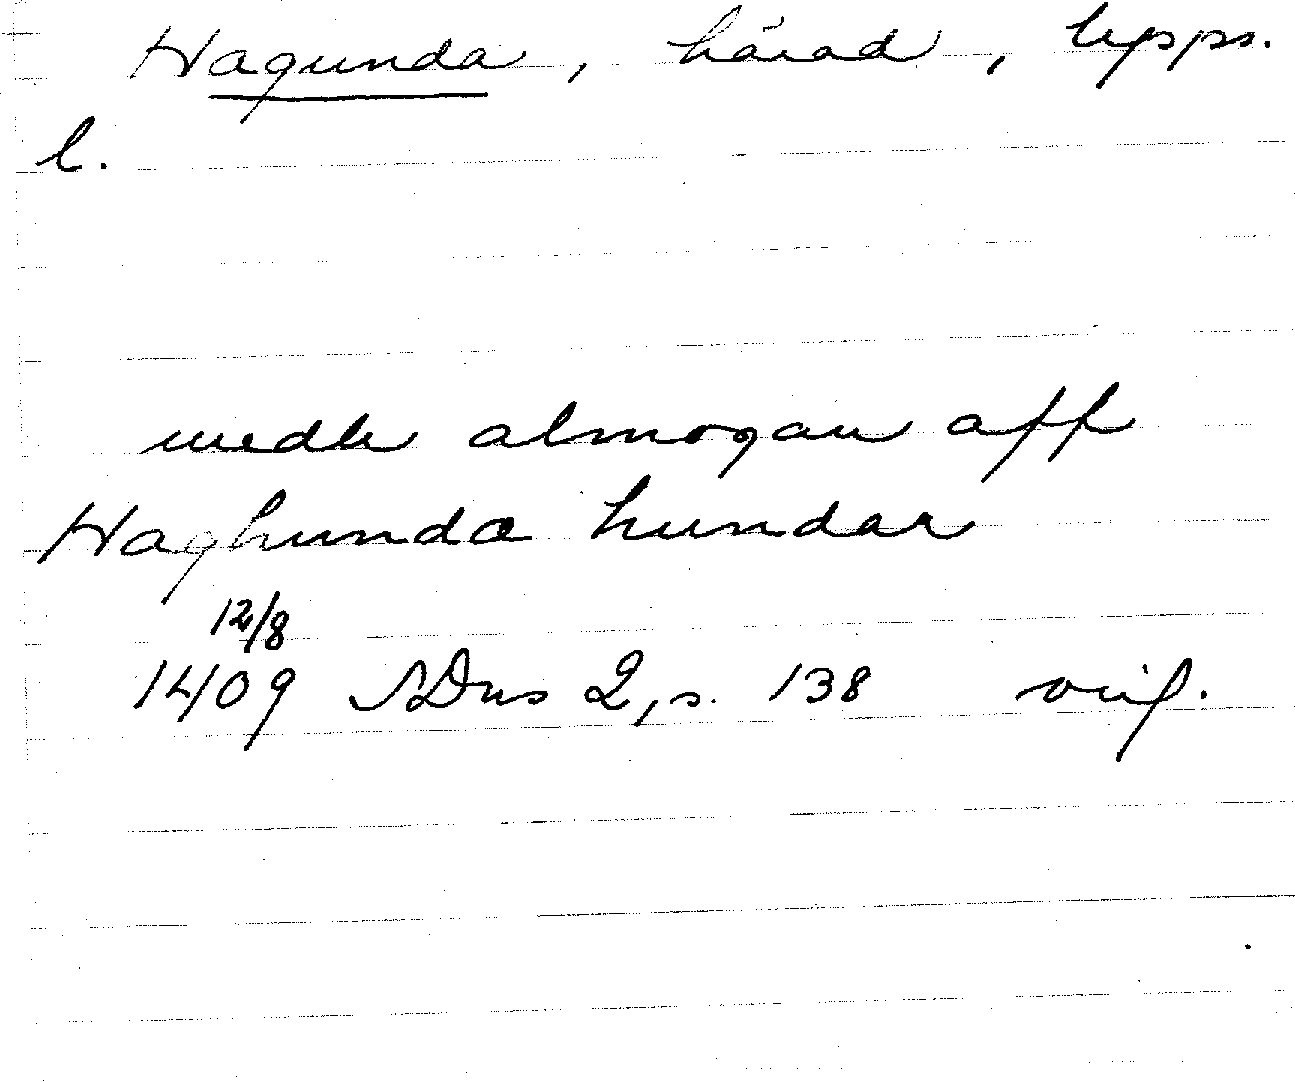 Hagunda, härad, Upps.
l.
medh almogan aff
Haghunda hundar
12/8
1409 SDns 2, s. 138 orig.